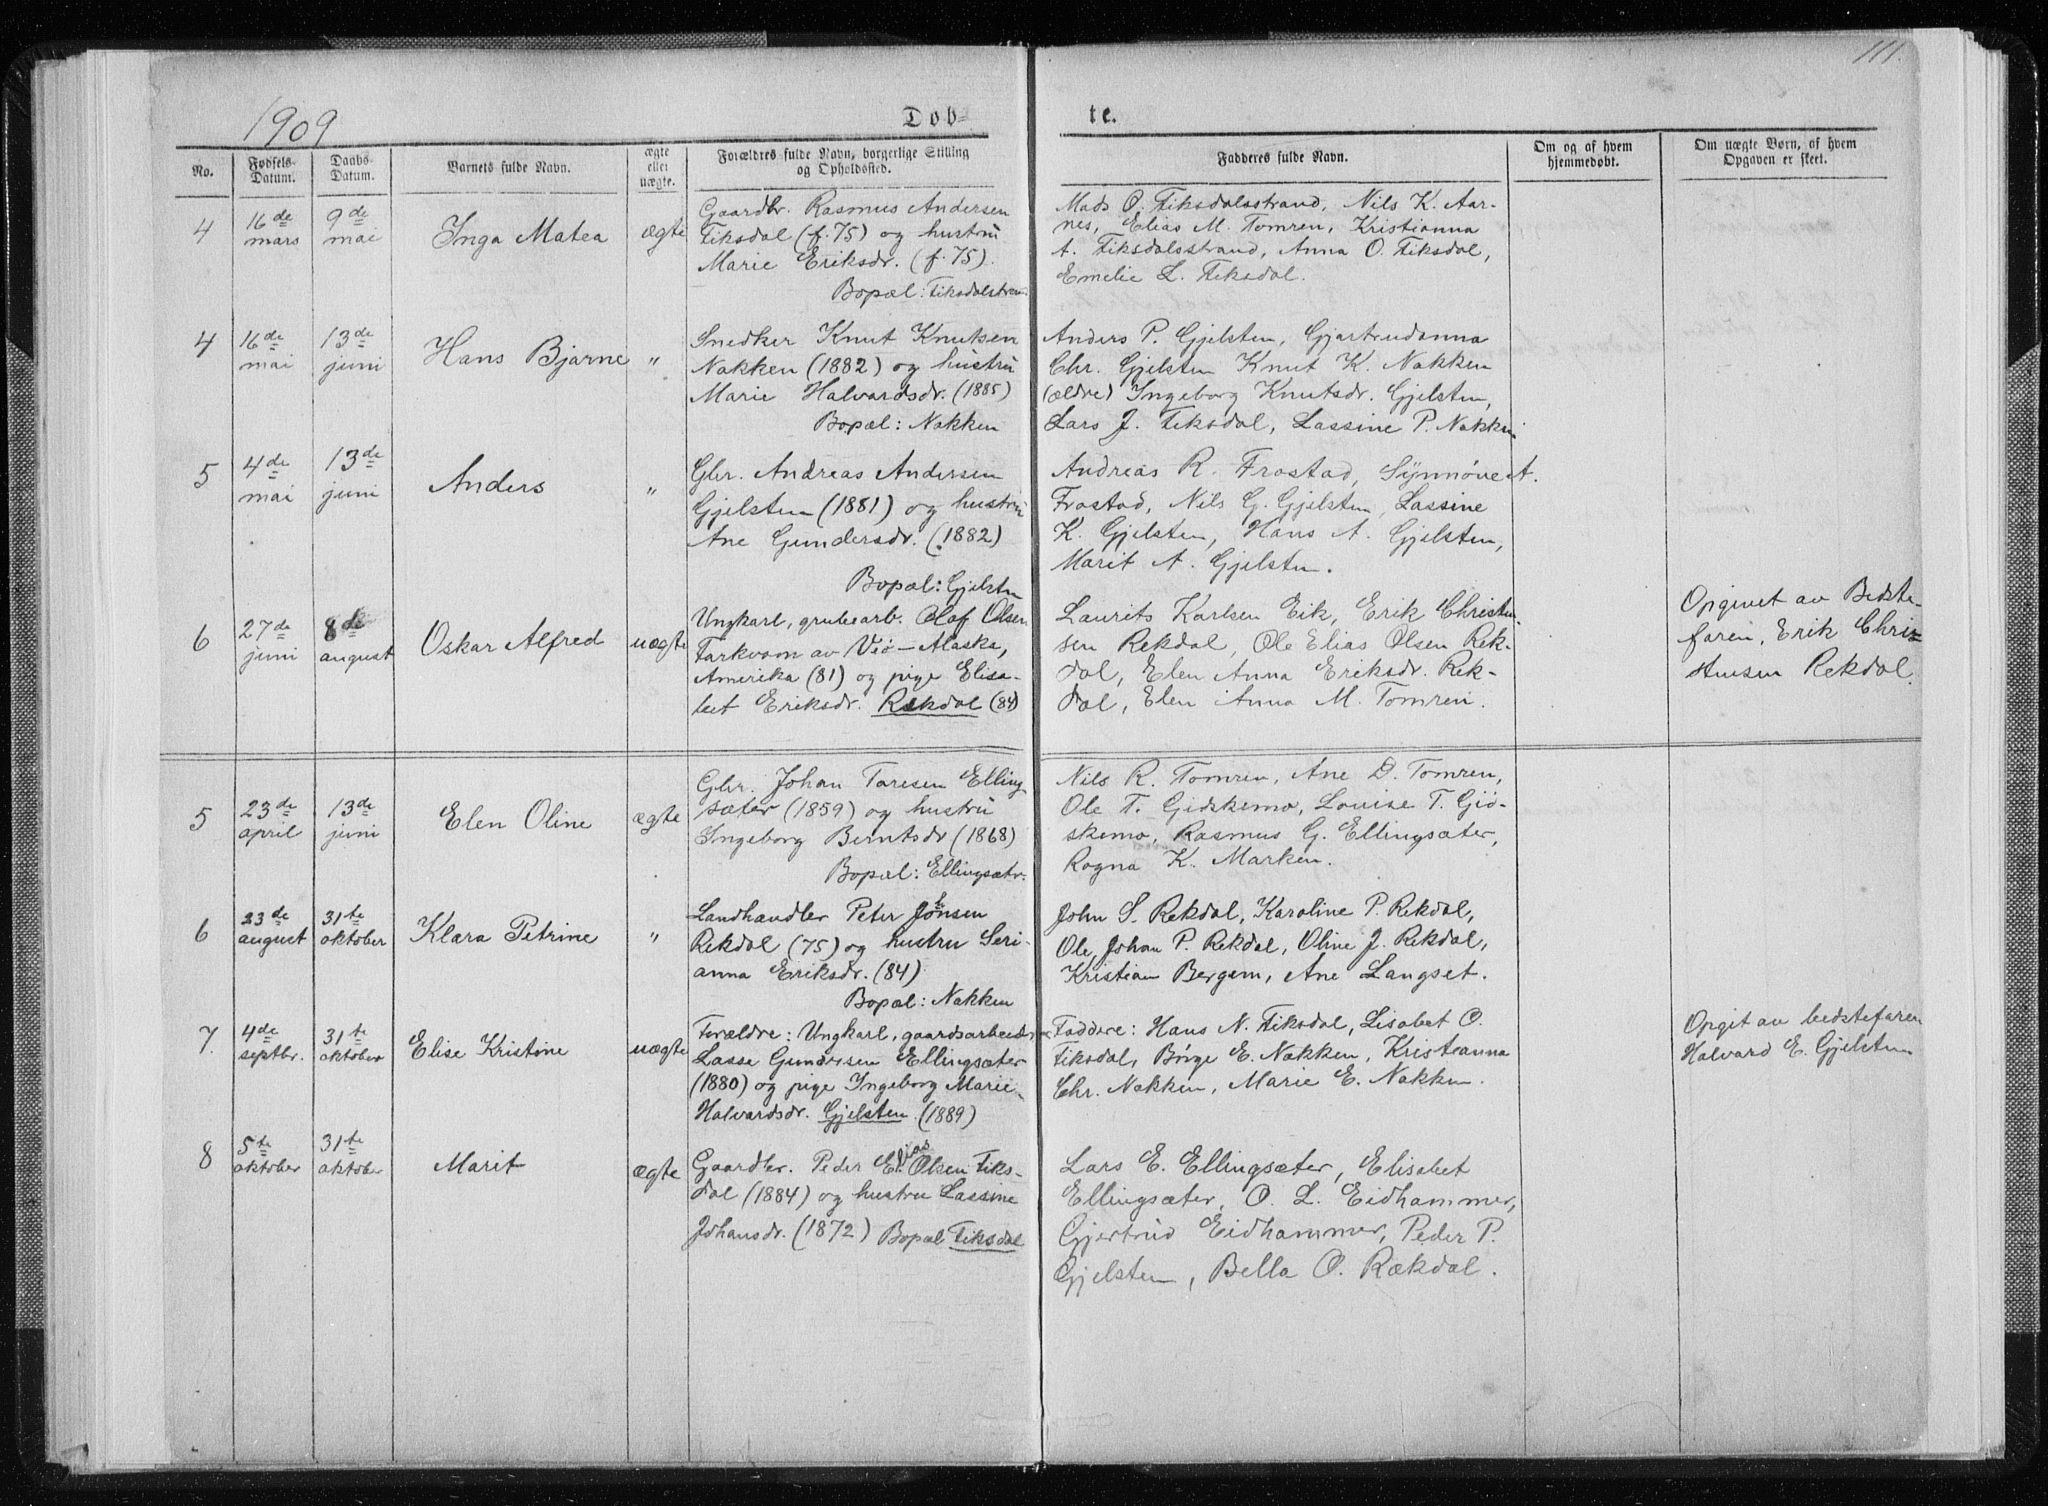 111.
1909
Døb-
te.
No.
Fødsels-Datum.
Daabs-Datum.
Barnets fulde Navn.
ægte eller uægte.
Forældres fulde Navn, borgerlige Stilling og Opholdssted.
Fadderes fulde Navn.
Om og af hvem hjemmedøbt.
Om uægte Børn, af hvem Opgaven er skeet.
4
16de mars
9de mai
Inga Matea
ægte
Gaardbr. Rasmus Andersen
Fiksdal (f. 75) og hustru
Marie Eriksdr. (f. 75).
Bopæl: Fiksdalstran
Mads O. Fiksdalsstrand, Nils K. Aar-
nes, Elias M. Tomren, Kristianna
A. Fiksdalsstrand, Anna O. Fiksdal,
Emelie L. Fiksdal.
4
16de mai
13de juni
Hans Bjarne
"
Snedker Knut Knutsen
Nakken (1882) og hustru
Marie Halvardsdr. (1885)
Bopæl: Nakken
Anders P. Gjelsten, Gjartrudanna
Chr. Gjelsten Knut K. Nakken
(ældre) Ingeborg Knutsdr. Gjelsten,
Lars J. Fiksdal, Lassine P. Nakken
5
4de mai
13de juni
Anders
"
Gbr. Andreas Andersen
Gjelsten (1881) og hustru
Ane Gundersdr. (1882)
Bopæl: Gjelsten
Andreas R. Frostad, Synnøve A.
Frostad, Nils G. Gjelsten, Lassine
K. Gjelsten, Hans A. Gjelsten,
Marit A. Gjelsten.
6
27de juni
8de august
Oskar Alfred
uægte
Ungkarl, grubearb. Olaf Olsen
Farkvam av Viø - Alaska,
Amerika (81) og pige Elisa-
bet Eriksdr. Rekdal (84)
Laurits Karlsen Eik, Erik Christen-
sen Rekdal, Ole Elias Olsen Rek-
dal, Elen Anna Eriksdr. Rek-
dal, Elen Anna M. Tomren.
Opgivet av Bedste-
faren, Erik Chris-
tensen Rekdal.
5
23de april
13de juni
Elen Oline
ægte
Gbr. Johan Taresen Elling
sæter (1859) og hustru
Ingeborg Berntsdr (1868)
Bopæl: Ellingsætr.
Nils R. Tomren, Ane D. Tomren,
Ole T. Gidskemo, Louise T. Gid-
skemo, Rasmus G. Ellingsæter,
Ragna K. Marken.
6
23de august
31te oktober
Klara Petrine
"
Landhandler Peter Johnsen
Rekdal (75) og hustru Seri-
anna Eriksdr. (84)
Bopæl: Nakken
John S. Rekdal, Karoline P. Rekdal,
Ole Johan P. Rekdal, Oline J. Rekdal,
Kristian Bergem, Ane Langset.
7.
4de septbr.
31te oktober
Elise Kristine
uægte
Forældre: Ungkarl, gaardsarbeider
Lasse Gundersen Ellingsæter
(1880) og pige Ingeborg Marie
Halvardsdr. Gjelsten (1889)
Faddere: Hans N. Fiksdal, Lisabet O.
Fiksdal, Børge E. Nakken, Kristianna
Chr. Nakken, Marie E. Nakken.
Opgit av bedstefaren
Halvard E. Gjelsten
8
5te oktober
31te oktober
Marit
ægte
Gaardbr. Peder Elias Olsen Fiks-
dal (1884) og hustru Lassine
Johansdr. (1872) Bopæl Fiksdal
Lars E. Ellingsæter, Elisabet
Ellingsæter, O. L. Eidhammer,
Gjertrud Eidhammer, Peder P.
Gjelsten, Bella O. Rækdal.